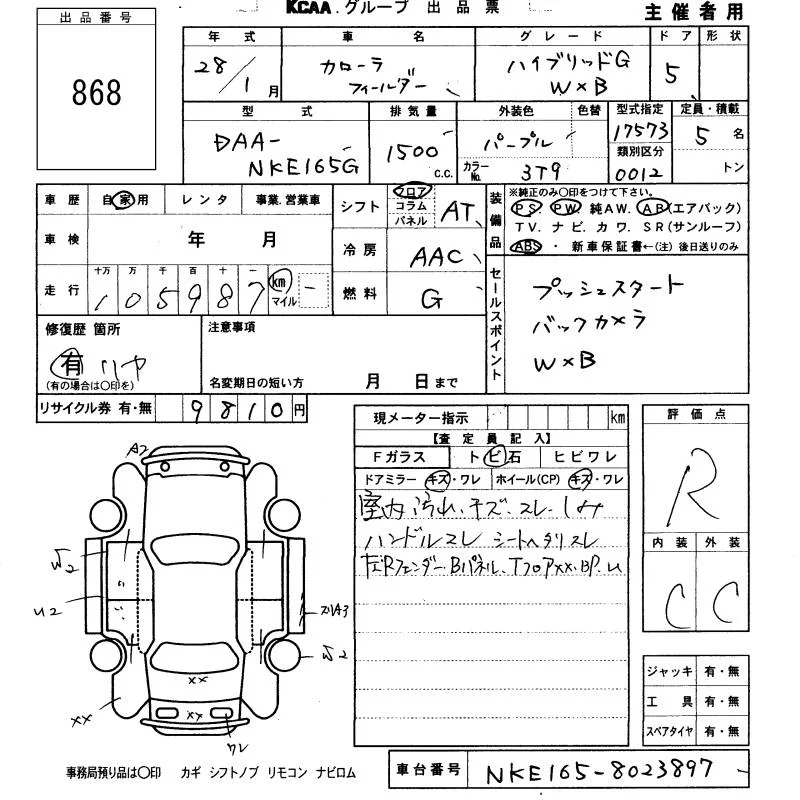 KCAA グループ 出品票
主催者用
出品番号
868
年式 車名 グレード ドア 形状
28/1月 カローラ フィールダー ハイブリッドG W×B 5
型式 排気量 外装色 色替 型式指定 定員・積載
DAA-NKE165G 1500 C.C. パープル 17573 5 名
カラーNo. 3T9 類別区分 0012 トン
車歴 自家用 レンタ 事業.営業車
シフト フロア コラム パネル AT
装備品 ※純正のみ〇印をつけて下さい。
PS PW 純AW. AB(エアバック)
TV. ナビ. カワ. SR(サンルーフ)
ABS ・ 新車保証書←(注) 後日送りのみ
車検 年 月
冷房 AAC
走行 十万 万 千 百 十 一 km マイル
105987 –
燃料 G
セールスポイント
プッシュスタート
バックカメラ
W×B
修復歴 箇所
有 リヤ
(有の場合は〇印を)
注意事項
名変期日の短い方 月 日まで
リサイクル券 有・無 9810円
現メーター指示 km
【査定員記入】
Fガラス トビ石 ヒビワレ
ドアミラー キズ・ワレ ホイール(CP) キズ・ワレ
室内汚れ、キズ、スレ、しみ
ハンドルスレ シートヘタリスレ
左Rフェンダー、Bパネル、TフロアXX、BP.u
評価点
R
内装 外装
C C
A2
W2
U2
A3
W2
XX
XX
XX
ワレ
ジャッキ 有・無
工具 有・無
スペアタイヤ 有・無
事務局預り品は〇印 カギ シフトノブ リモコン ナビロム
車台番号 NKE165-8023897